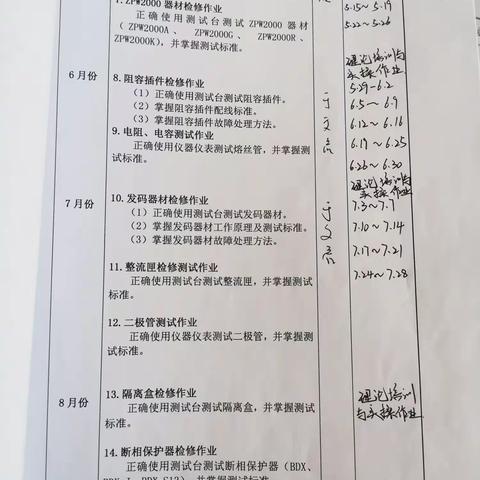 7.ZPW2000 器材检修作业
正确使用测试台测试 ZPW2000 器材
（ZPW2000A、ZPW2000G、ZPW2000R、
ZPW2000K），并掌握测试标准。
5.15～5.19
5.22～5.26
理论培训与
实操作业
6 月份
8.阻容插件检修作业
（1）正确使用测试台测试阻容插件。
（2）掌握阻容插件配线标准。
（3）掌握阻容插件故障处理方法。
9.电阻、电容测试作业
正确使用仪器仪表测试熔丝管，并掌握测
试标准。
于文亮
5.29～6.2
6.5～6.9
6.12～6.16
6.19～6.25
6.26～6.30
理论培训与
实操作业
7 月份
10.发码器材检修作业
（1）正确使用测试台测试发码器材。
（2）掌握发码器材工作原理及测试标准。
（3）掌握发码器材故障处理方法。
于文亮
7.3～7.7
7.10～7.14
7.17～7.21
7.24～7.28
11.整流匣检修测试作业
正确使用测试台测试整流匣，并掌握测试
标准。
12.二极管测试作业
正确使用仪器仪表测试二极管，并掌握测
试标准。
8 月份
13.隔离盒检修作业
正确使用测试台测试隔离盒，并掌握测试
标准。
理论培训
与实操作业
14.断相保护器检修作业
正确使用测试台测试断相保护器（BDX、